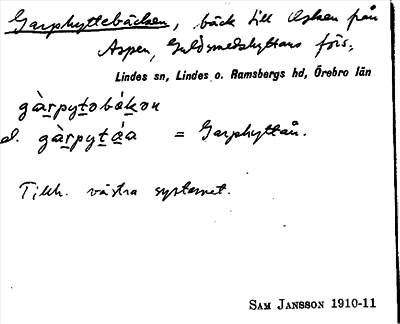 Garphyttebäcken, bäck till Olsken från
Aspen, Guldsmedshyttans förs.
Lindes sn, Lindes o. Ramsbergs hd, Örebro län
gàrpytobákon
el. gàrpytáa = Garphyttån.
Tillh. västra systemet.
SAM JANSSON 1910-11